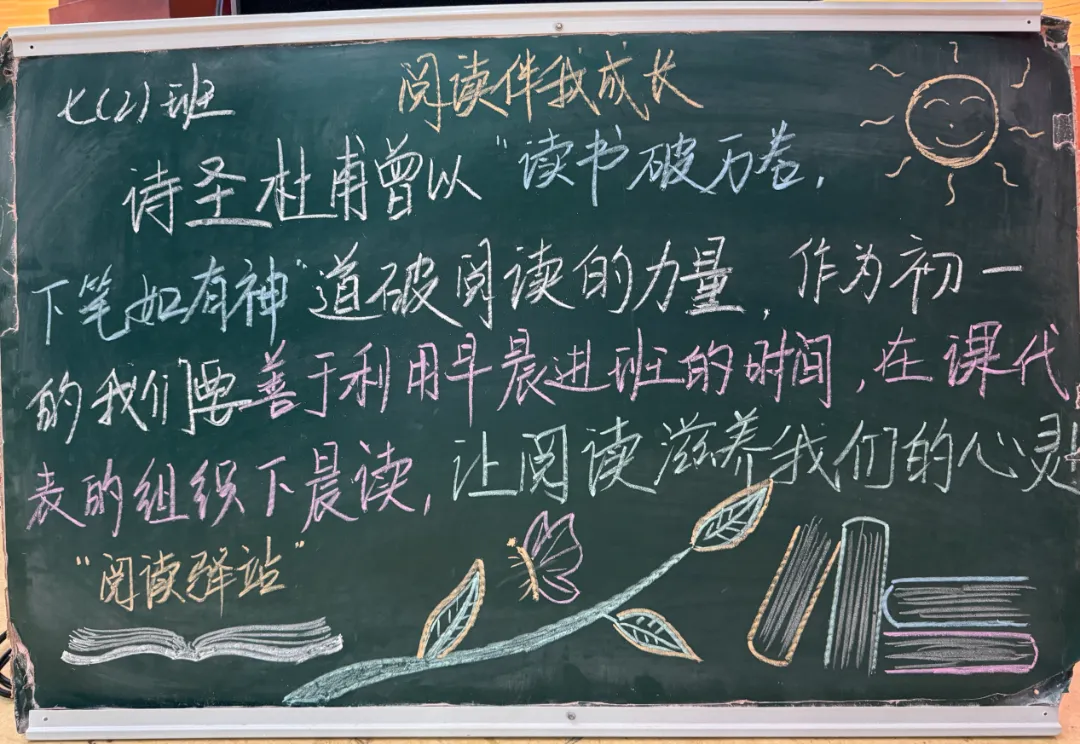 七(2)班
阅读伴我成长
诗圣杜甫曾以"读书破万卷,
下笔如有神"道破阅读的力量,作为初一
的我们要善于利用早晨进班的时间,在课代
表的组织下晨读,让阅读滋养我们的心灵
"阅读驿站"